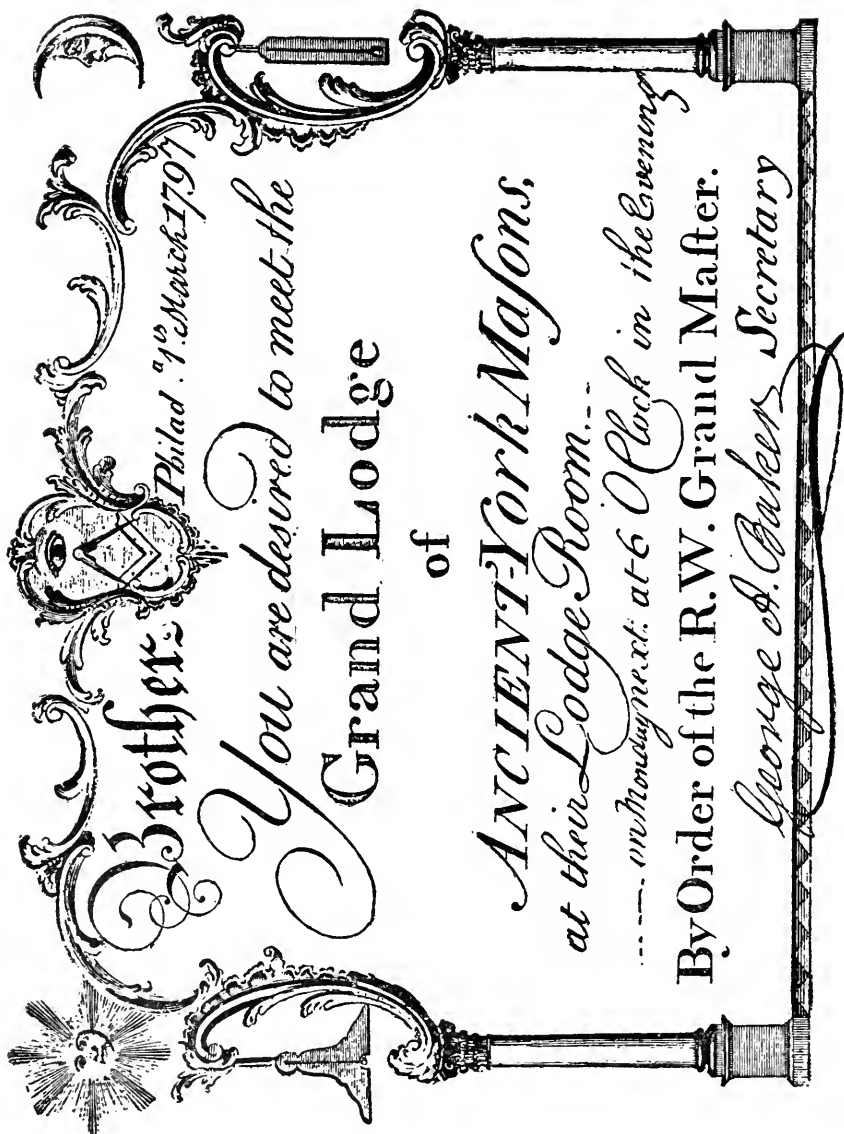 Brother
Philad.ª 1st March 1797
You are desired to meet the
Grand Lodge
of
ANCIENT-York Maſons,
at their Lodge Room.--
----- on Monday next: at 6 O Clock in the Evening
By Order of the R.W. Grand Maſter.
George A. Baker Secretary